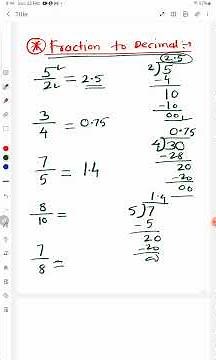 Title
* Fraction to Decimal :-
5/2 = 2.5
3/4 = 0.75
7/5 = 1.4
8/10 =
7/8 =
2.5
2) 5
-4
10
-10
00
0.75
4) 30
-28
20
-20
00
1.4
5) 7
-5
20
-20
0